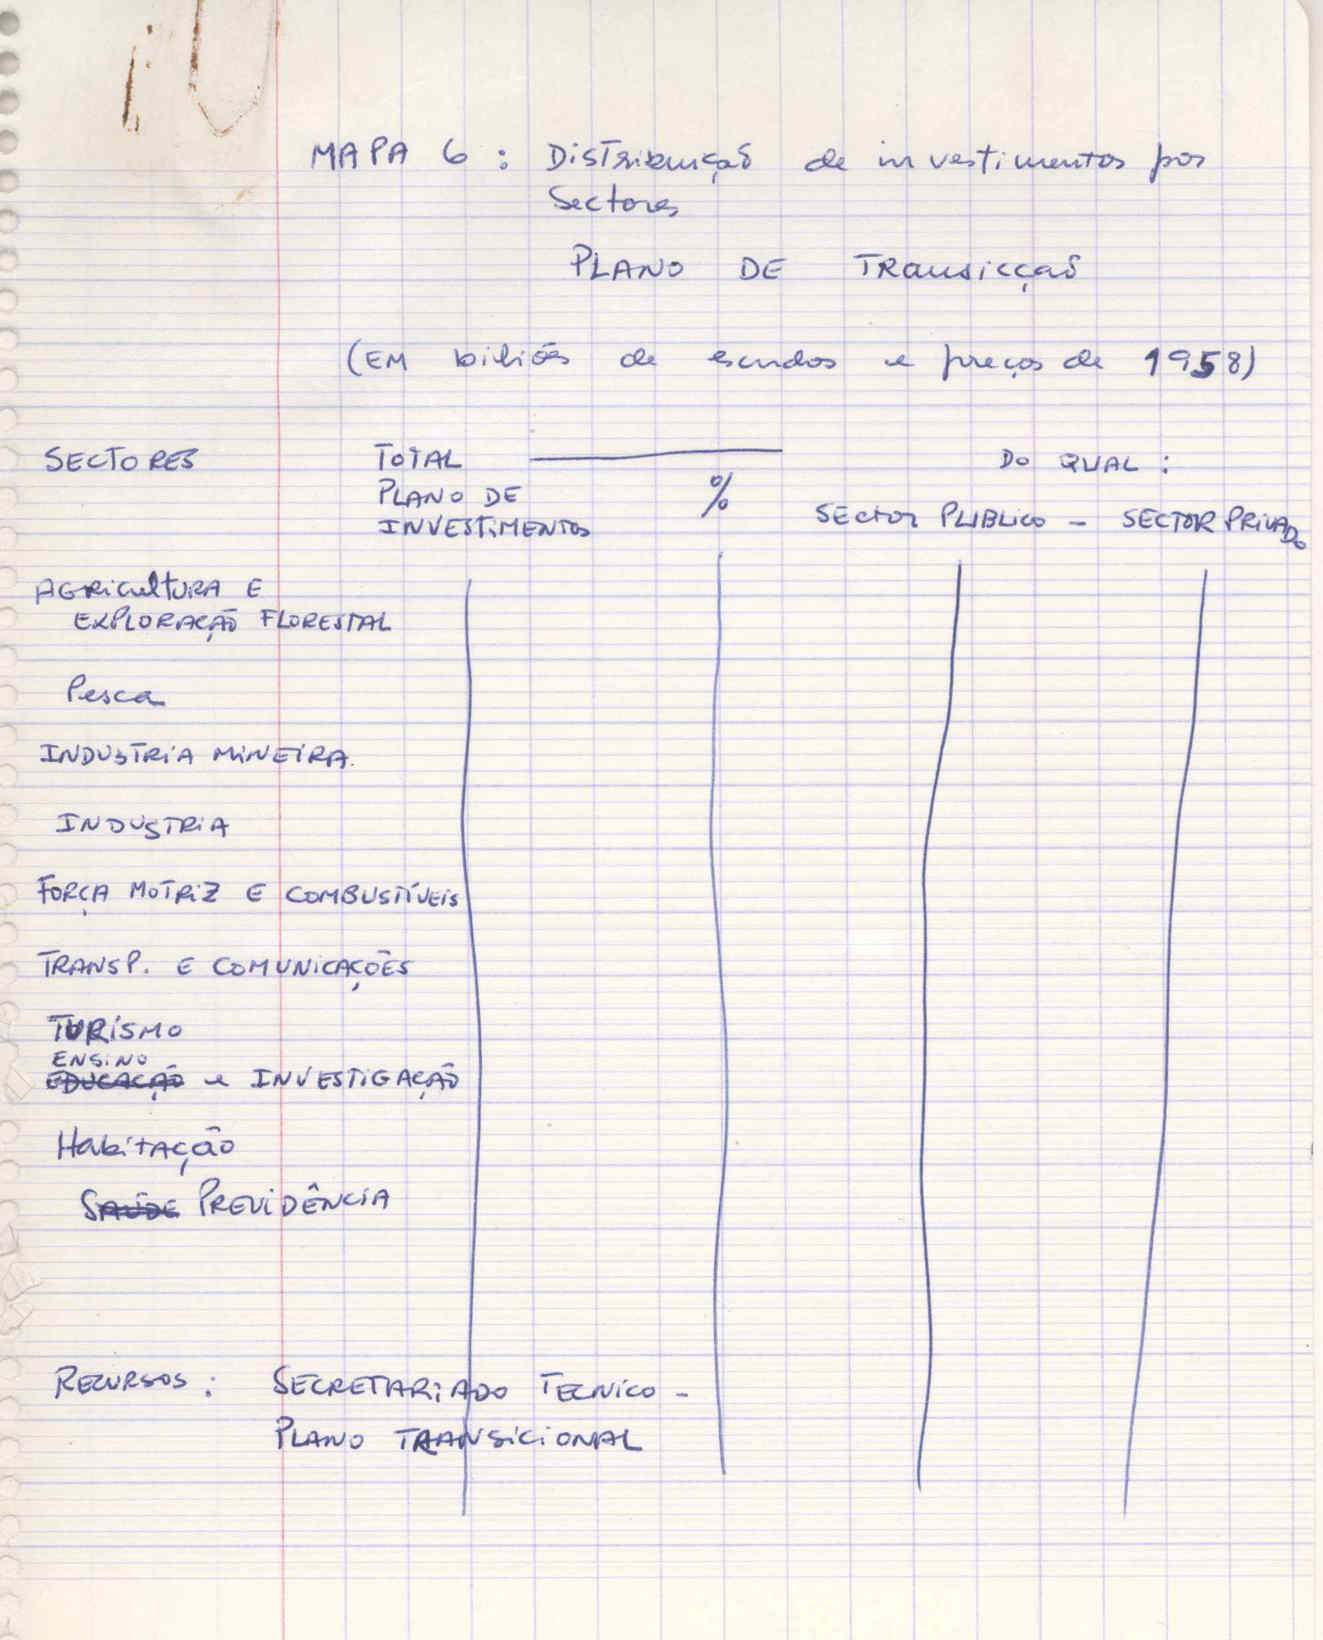 MAPA 6 : Distribuição de investimentos por
Sectores
PLANO DE Transicção
(EM biliões de escudos e preços de 1958)
SECTORES TOTAL DO QUAL :
PLANO DE %
INVESTIMENTOS SECTOR PUBLICO - SECTOR PRIVADO
AGRICULTURA E
EXPLORAÇÃO FLORESTAL
Pesca
INDUSTRIA MINEIRA.
INDUSTRIA
FORÇA MOTRIZ E COMBUSTÍVEIS
TRANSP. E COMUNICAÇÕES
TURISMO
ENSINO
EDUCAÇÃO e INVESTIGAÇÃO
Habitação
SAÚDE PREVIDÊNCIA
RECURSOS : SECRETARIADO TECNICO -
PLANO TRANSICIONAL